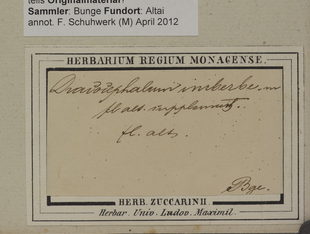 teils Originalmaterial!
Sammler: Bunge Fundort: Altai
annot. F. Schuhwerk (M) April 2012
HERBARIUM REGIUM MONACENSE.
Dracocephalum imberbe. m
fl. alt. supplement.
fl. alt.
Bge.
HERB. ZUCCARINII
Herbar. Univ. Ludov. Maximil.